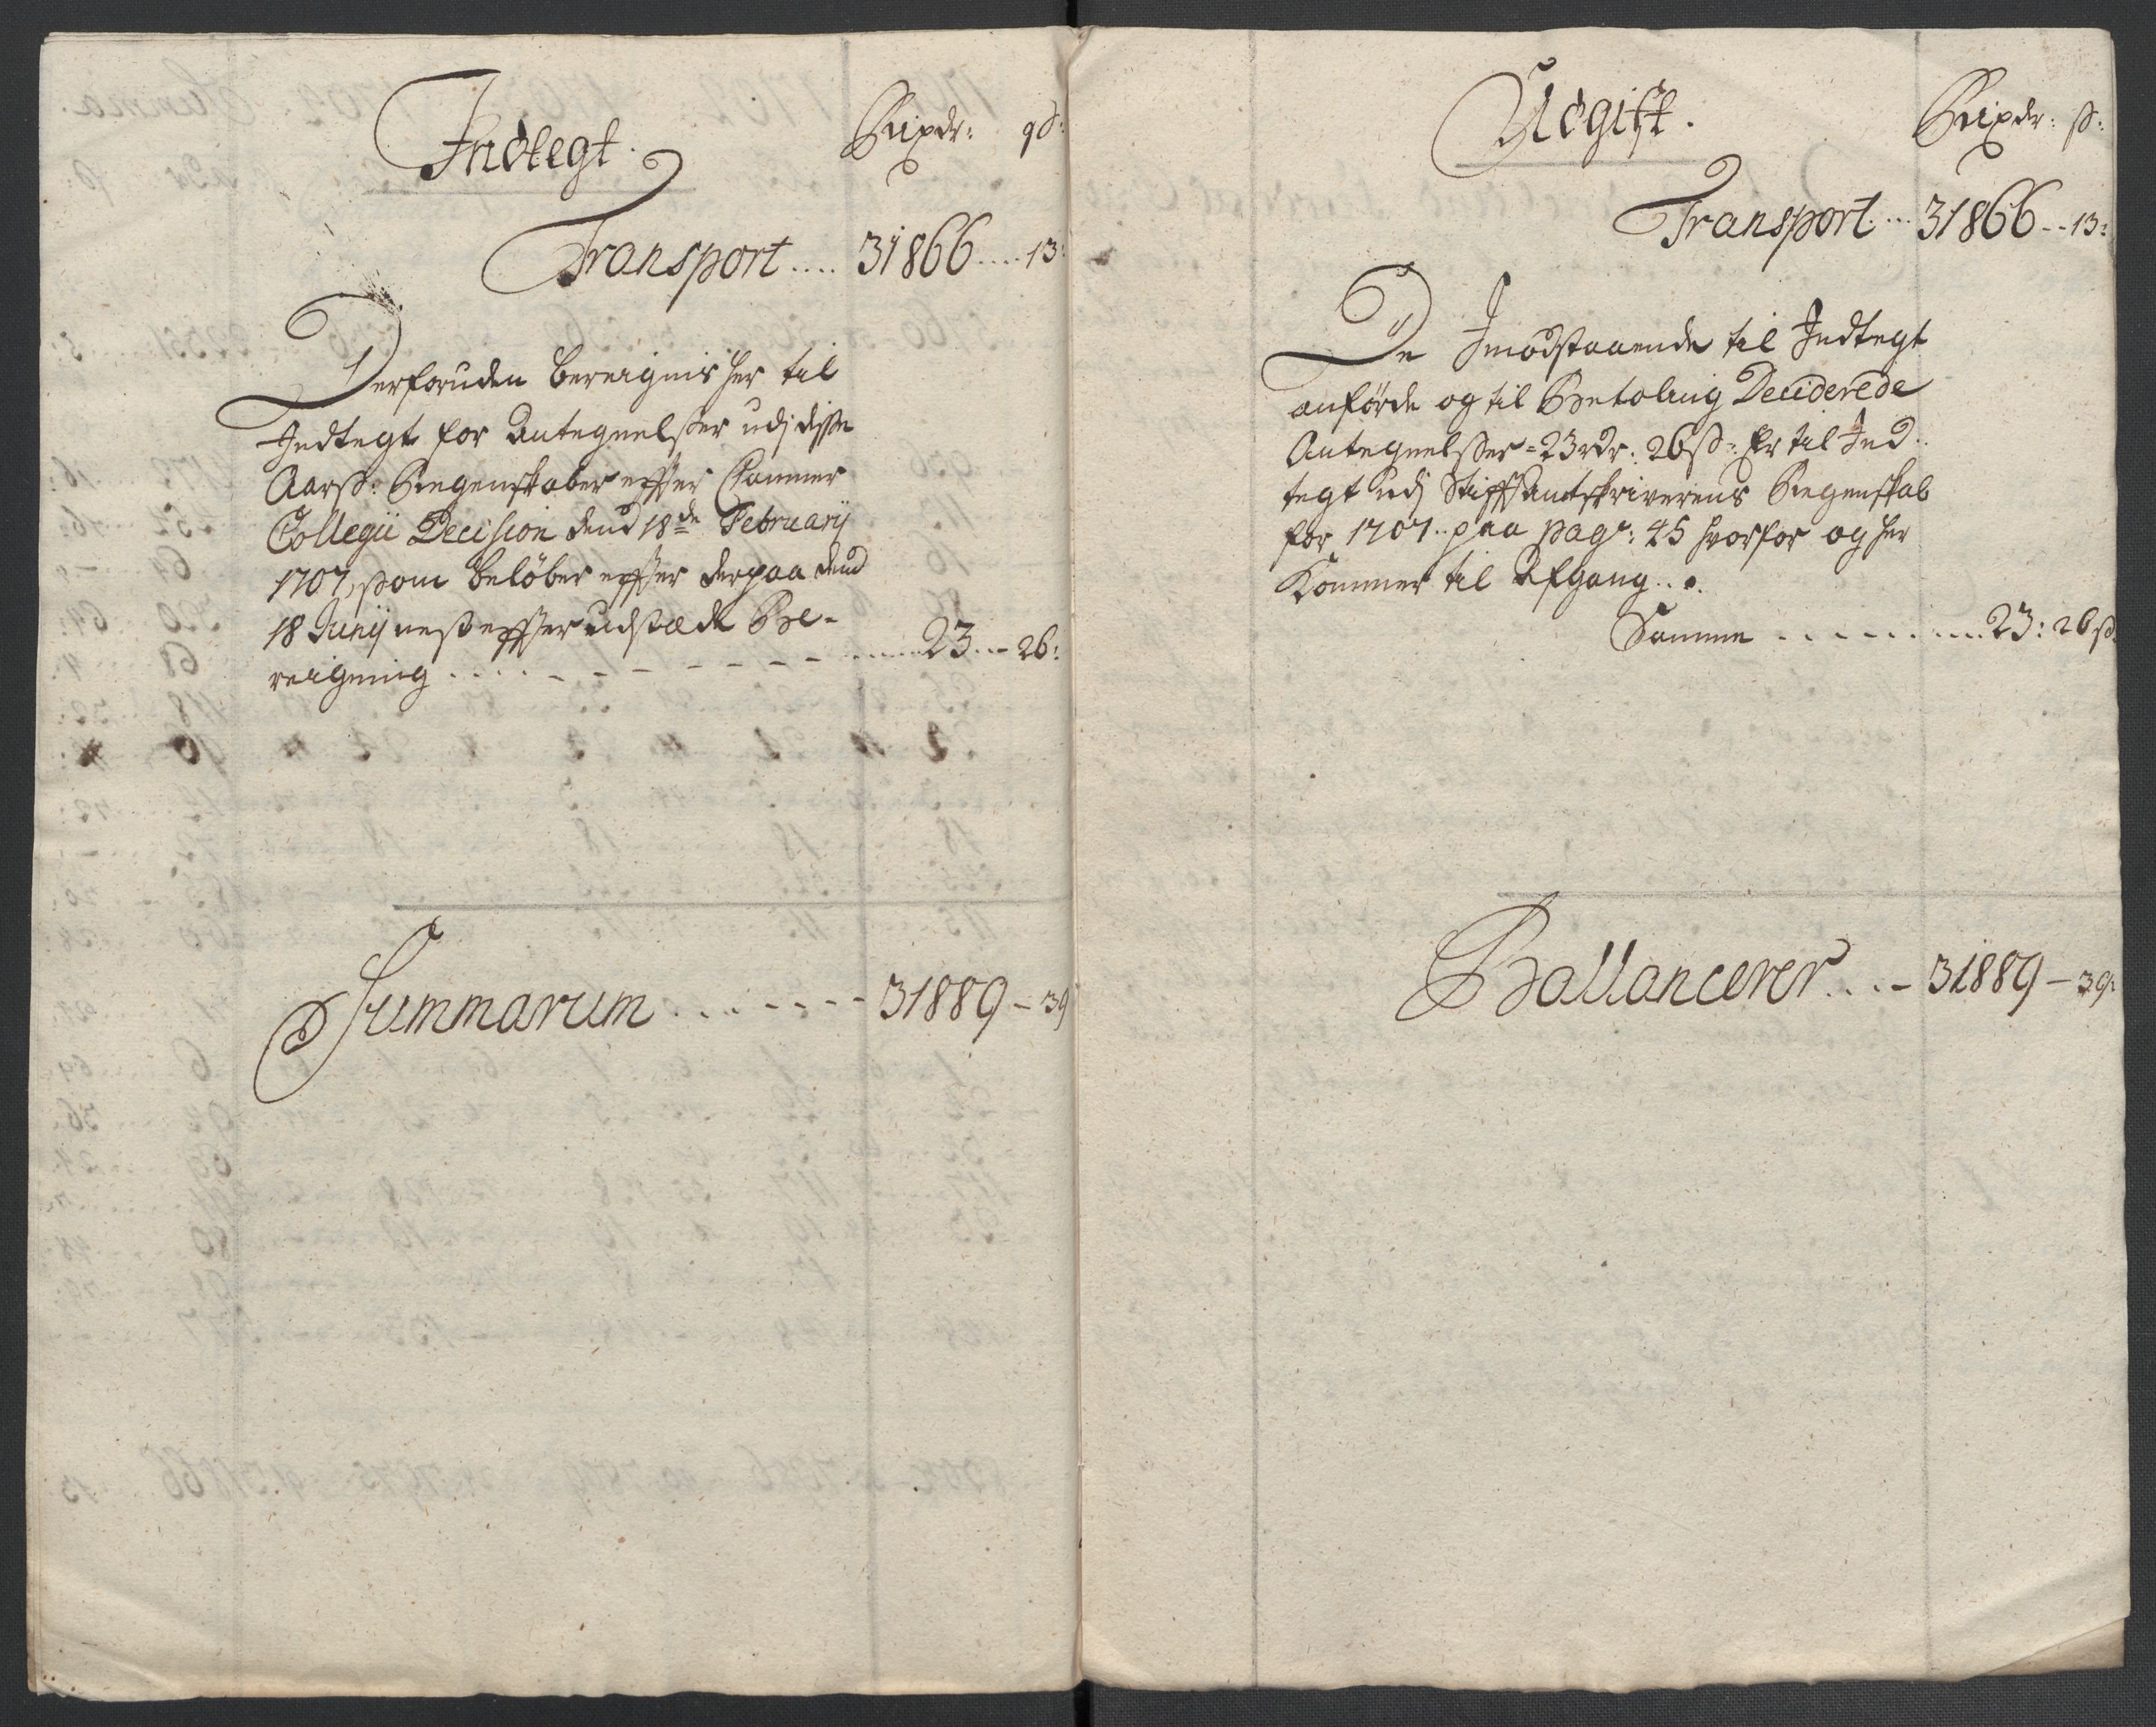 Indtegt.
Rixdr: ſß:
Transport .... 31866 .... 13:
Derforuden bereignis her til
Indtegt for Antegnelßer udj disse
Aarß: Regenskaber effter Cammer
Collegii Decision dend 18de Februarij
1707, ßom beløber effter derpaa dend
18 Junij nest effter udstædte Be-
reigning . . . . - - - - - - ...... 23 .. - 26:
Summarum . . . - - - - 31889 - 39
Udgift.
Rixdr: ß:
Transport ... 31866 - - 13:
De Imodstaaende til Indtegt
anførde og til Betaling Deciderede
Antegnelßer = 23 rdr: 26 ß: Er til Ind-
tegt udj Stiffts Amtskriverens Regenskab
for 1707 .. paa pag: 45 hvorfor og her
Kommer til Afgang . .
Samme . . . . . . . . . 23: 26 ß:
Ballancerer . . . - 31889 - 39: